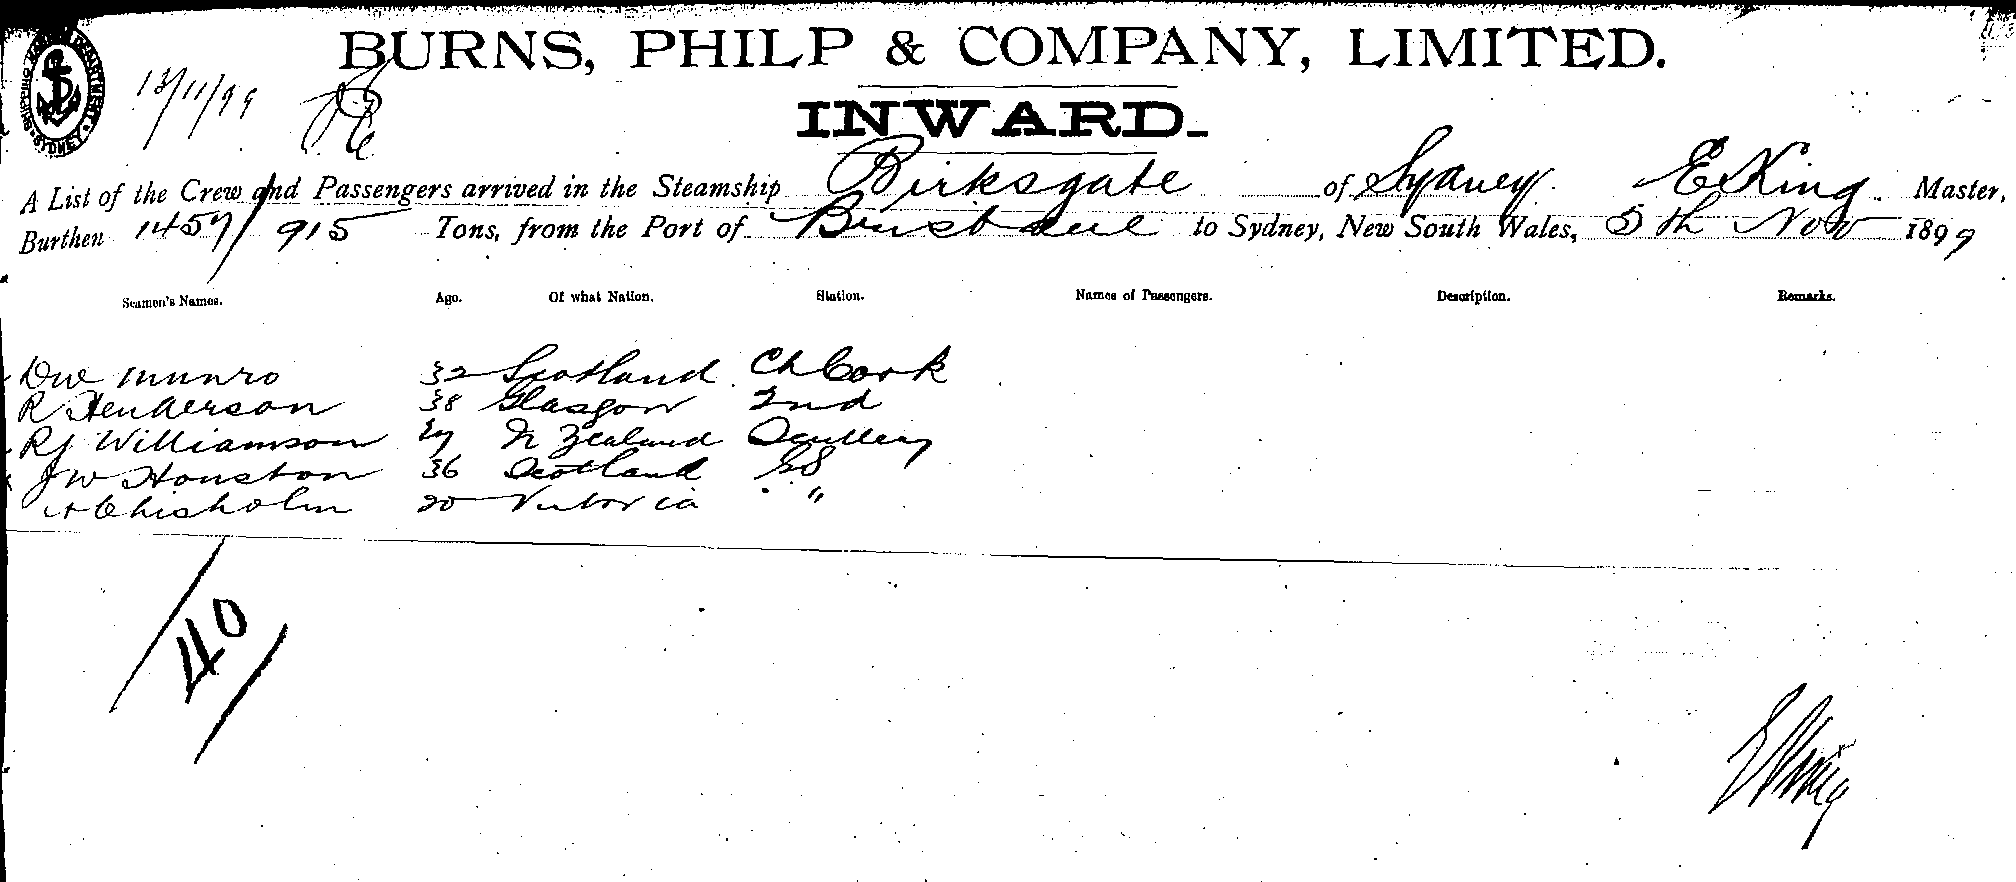 BURNS, PHILP & COMPANY, LIMITED.
SHIPPING DEPARTMENT SYDNEY
13/11/99
INWARD.
A List of the Crew and Passengers arrived in the Steamship Birksgate of Sydney E King Master,
Burthen 1457/915 Tons, from the Port of Brisbane to Sydney, New South Wales, 5th Nov 1899
Seamen's Names. Age. Of what Nation. Station. Names of Passengers. Description. Remarks.
Munro 32 Scotland Ch Cook
R Henderson 38 Glasgow 2nd
RJ Williamson N Zealand Scullery
JW Houston 36 Scotland GS
Chisholm 20 Victoria "
40
E King